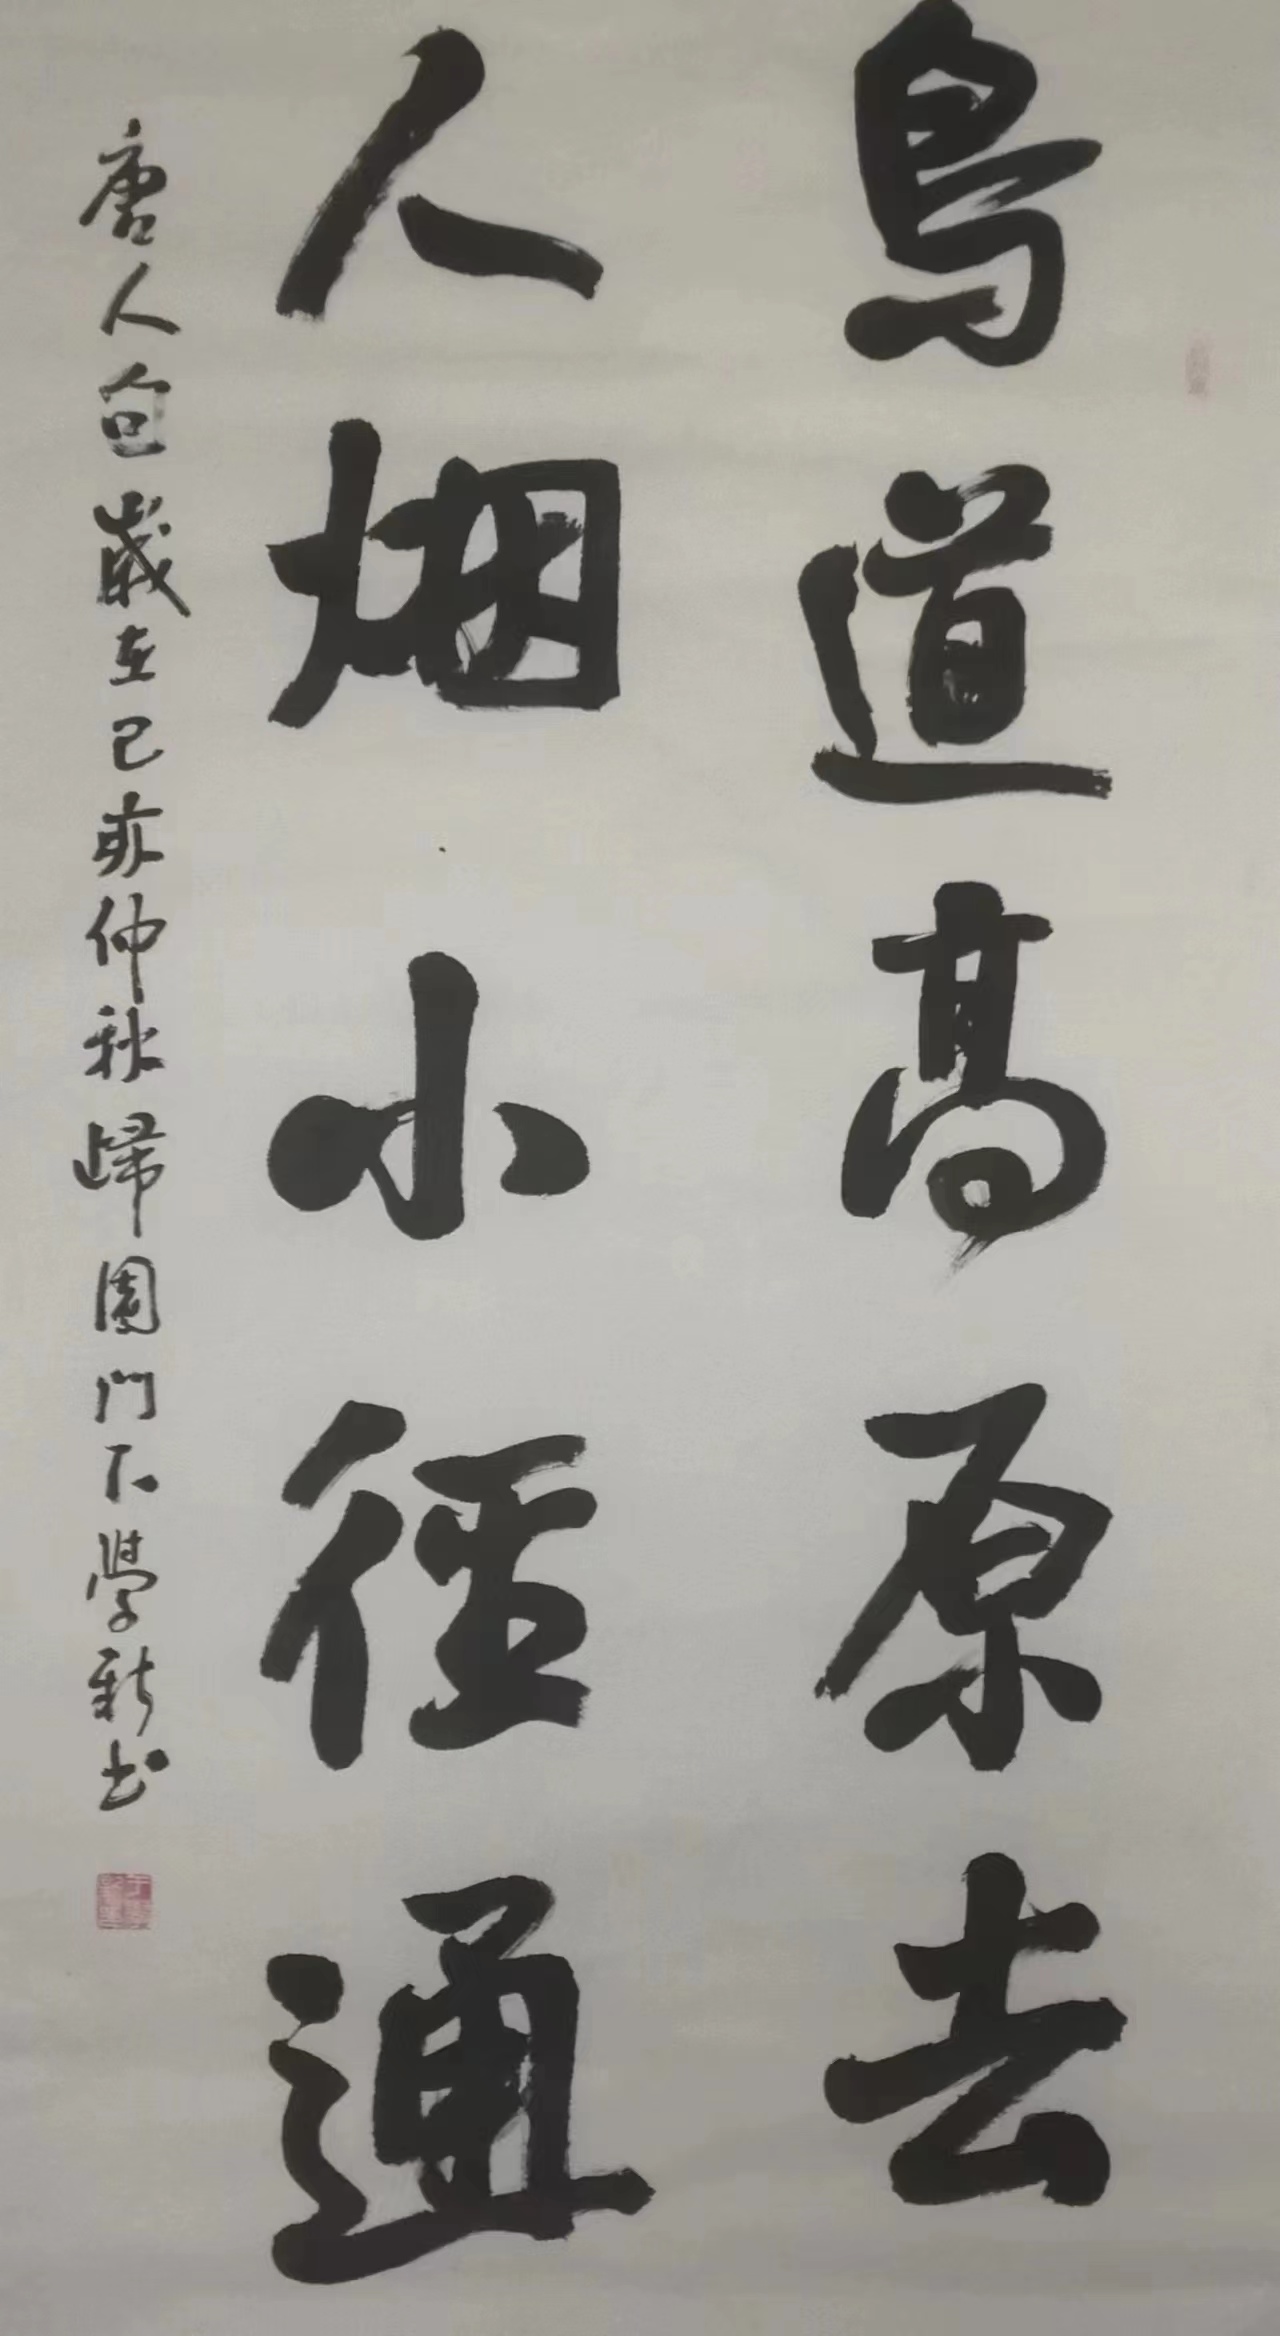 鳥道高原去
人烟小徑通
唐人句歲在己亥仲秋歸園門下學新书